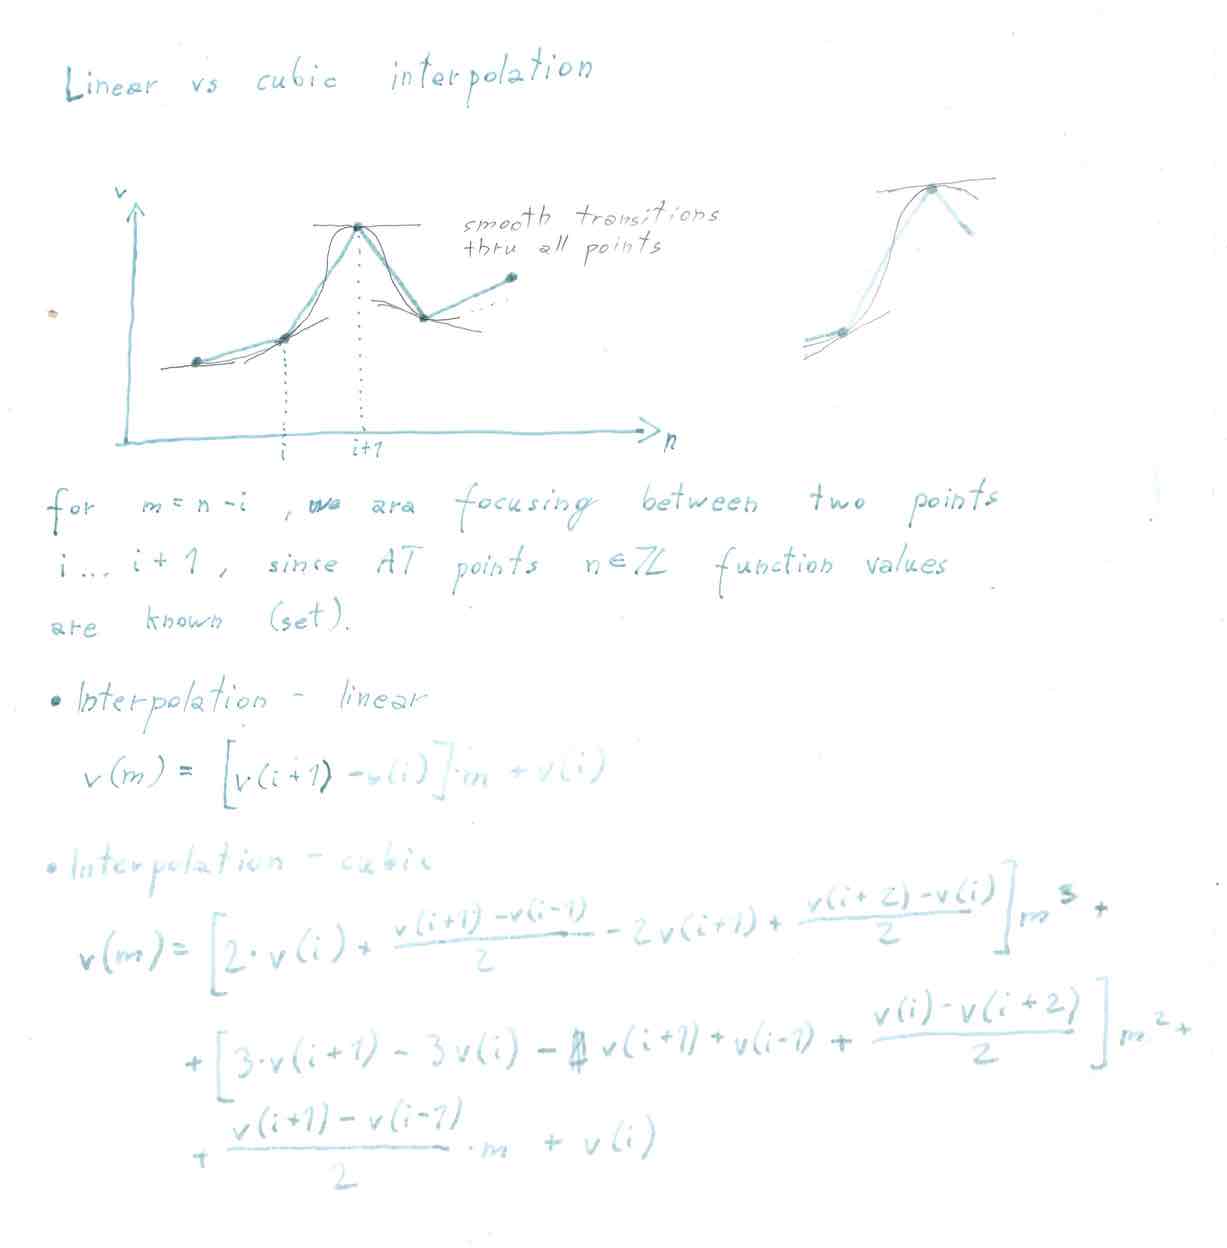 Linear vs cubic interpolation
v
smooth transitions
thru all points
n
i
i+1
for m = n - i , we are focusing between two points
i... i + 1 , since AT points n ∈ ℤ function values
are known (set).
• Interpolation - linear
v(m) = [v(i+1) - v(i)]·m + v(i)
• Interpolation - cubic
v(m) = [2·v(i) + (v(i+1) - v(i-1))/2 - 2v(i+1) + (v(i+2) - v(i))/2] m³ +
+ [3·v(i+1) - 3v(i) - v(i+1) + v(i-1) + (v(i) - v(i+2))/2] m² +
+ (v(i+1) - v(i-1))/2 · m + v(i)